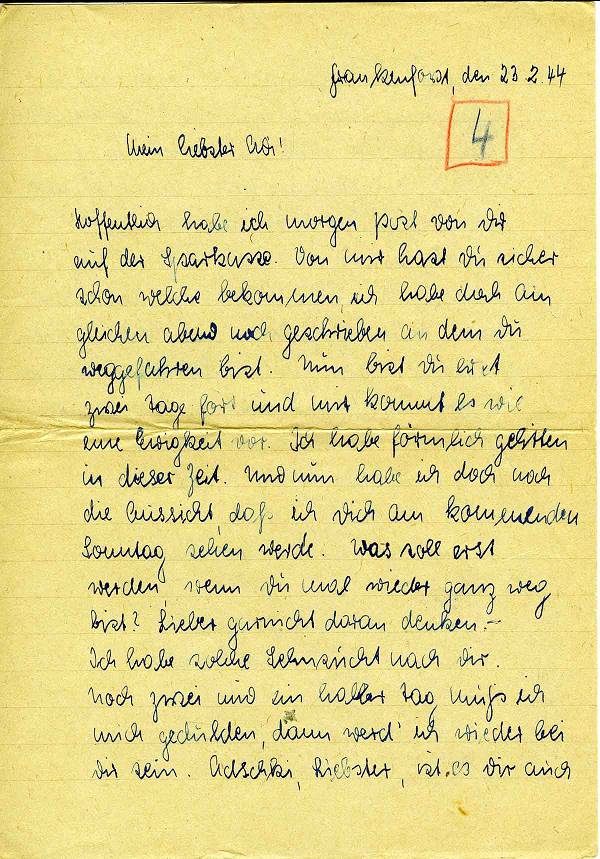 Frankenforst, den 23.2.44
4
Mein liebster Adi!
Hoffentlich habe ich morgen post von dir
auf der Sparkasse. Von mir hast du sicher
schon welche bekommen, ich habe doch am
gleichen abend noch geschrieben an dem du
weggefahren bist. Nun bist du erst
zwei Tage fort und mir kommt es wie
eine Ewigkeit vor. Ich habe förmlich gelitten
in dieser Zeit. Und nun habe ich doch noch
die Aussicht, daß ich dich am kommenden
Sonntag sehen werde. Was soll erst
werden, wenn du mal wieder ganz weg
bist? Lieber garnicht daran denken.–
Ich habe solche Sehnsucht nach dir.
Noch zwei und ein halber Tag muß ich
mich gedulden, dann werd' ich wieder bei
dir sein. Adschki, Liebster, ist es dir auch